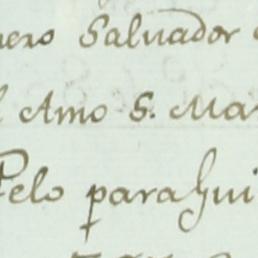 nero Salvador
Amo S. Mar
Pelo para Gui